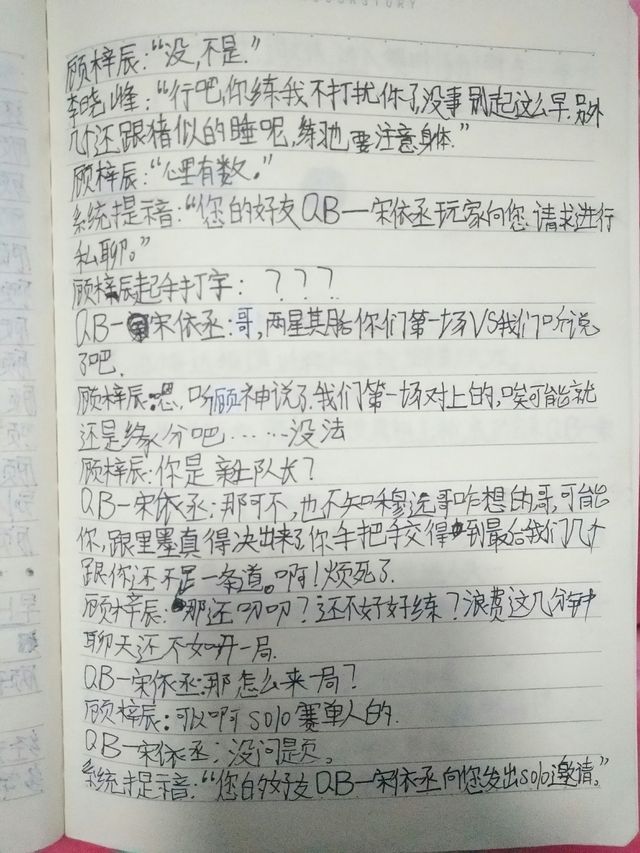 顾梓辰：“没，不是。”
李晓峰：“行吧，你练我不打扰你了，没事别起这么早.另外
几个还跟猪似的睡呢，练也要注意身体.”
顾梓辰：“心里有数。”
系统提示音：“您的好友QB一宋依丞玩家向您请求进行
私聊。”
顾梓辰起手打字：？？？
QB一宋依丞：哥，两星期后你们第一场VS我们听说
了吧.
顾梓辰：嗯，听顾神说了.我们第一场对上的，唉可能就
还是缘分吧……没法
顾梓辰：你是亲上队长？
QB一宋依丞：那可不，也不知穆选哥咋想的哥，可能
你，跟里墨真得决出来了你手把手交得到最后我们几个
跟你还不是一条道。啊！烦死了.
顾梓辰：那还叨叨？还不好好练？浪费这几分钟
聊天还不如开一局.
QB一宋依丞：那怎么来一局？
顾梓辰：可以啊solo赛单人的.
QB一宋依丞：没问题。
系统提音：“您的好友QB一宋依丞向您发出solo邀请。”